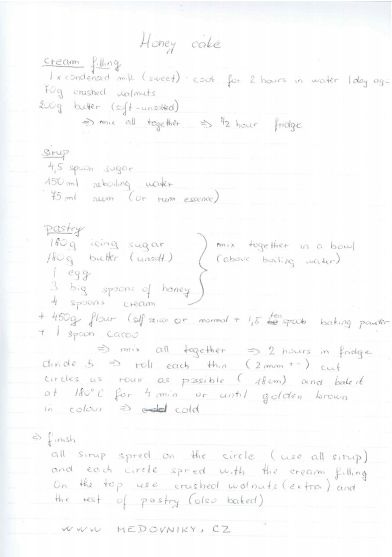 Honey cake
cream filling
1x condensed milk (sweet) · cook for 2 hours in water 1 day ag-
70g crushed walnuts
200g butter (soft-unsalted)
⇒ mix all together ⇒ 1/2 hour fridge
sirup
4,5 spoon sugar
150ml reboiling water
75ml rum (or rum essence)
pastry
180g icing sugar
butter (unsolt)
1 egg
3 big spoons of honey
4 spoons cream
mix together in a bowl
(above boiling water)
+ 450g flour (self raise or normal + 1,5 tea spoon baking powder
+ 1 spoon cacou
⇒ mix all together ⇒ 2 hours in fridge
divide 5 ⇒ roll each thin (2mm +-) cut
circles as roun as possible (18cm) and bake it
at 180°C for 4 min or until golden brown
in colour ⇒ cold
⇒ finish
all sirup spred on the circle (use all sirup)
and each circle spred with the cream filling
On the top use crushed walnuts (extra) and
the rest of pastry (also baked)
WWW MEDOVNIKY.CZ